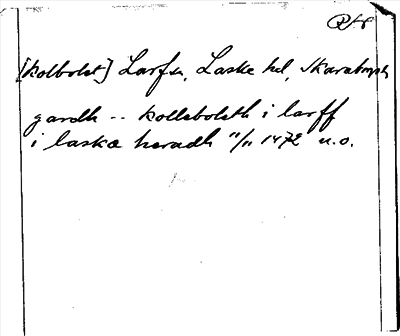 [Kolbolst] Larfs, Laske hd, Skaraborgs
gardh -- kollebolsth i larff
i laska haradh 11/11 1472 u.o.